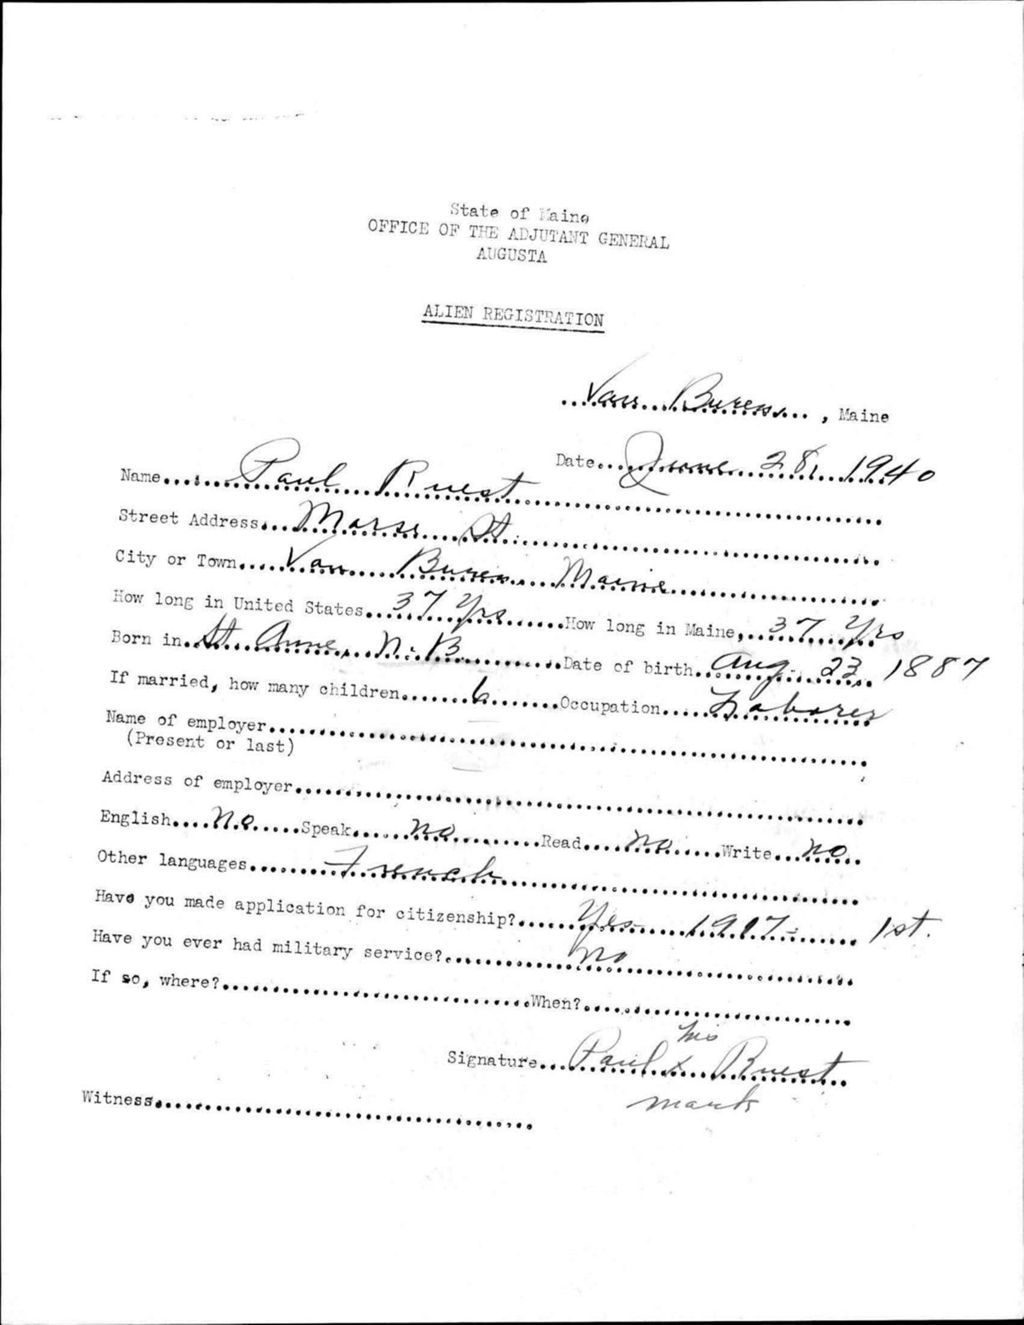 State of Maine
OFFICE OF THE ADJUTANT GENERAL
AUGUSTA
ALIEN REGISTRATION
Van Buren, Maine
Date June 28, 1940
Name Paul Ruest
Street Address Morse St.
City or Town Van Buren Maine
How long in United States 37 Yrs How long in Maine, 37 Yrs
Born in St Anne, N.B Date of birth Aug. 23 1887
If married, how many children 6 Occupation Laborer
Name of employer
(Present or last)
Address of employer
English no Speak no Read no Write no
Other languages French
Have you made application for citizenship? Yes 1917- 1st.
Have you ever had military service? no
If so, where? When?
his
Signature Paul x Ruest
mark
Witness